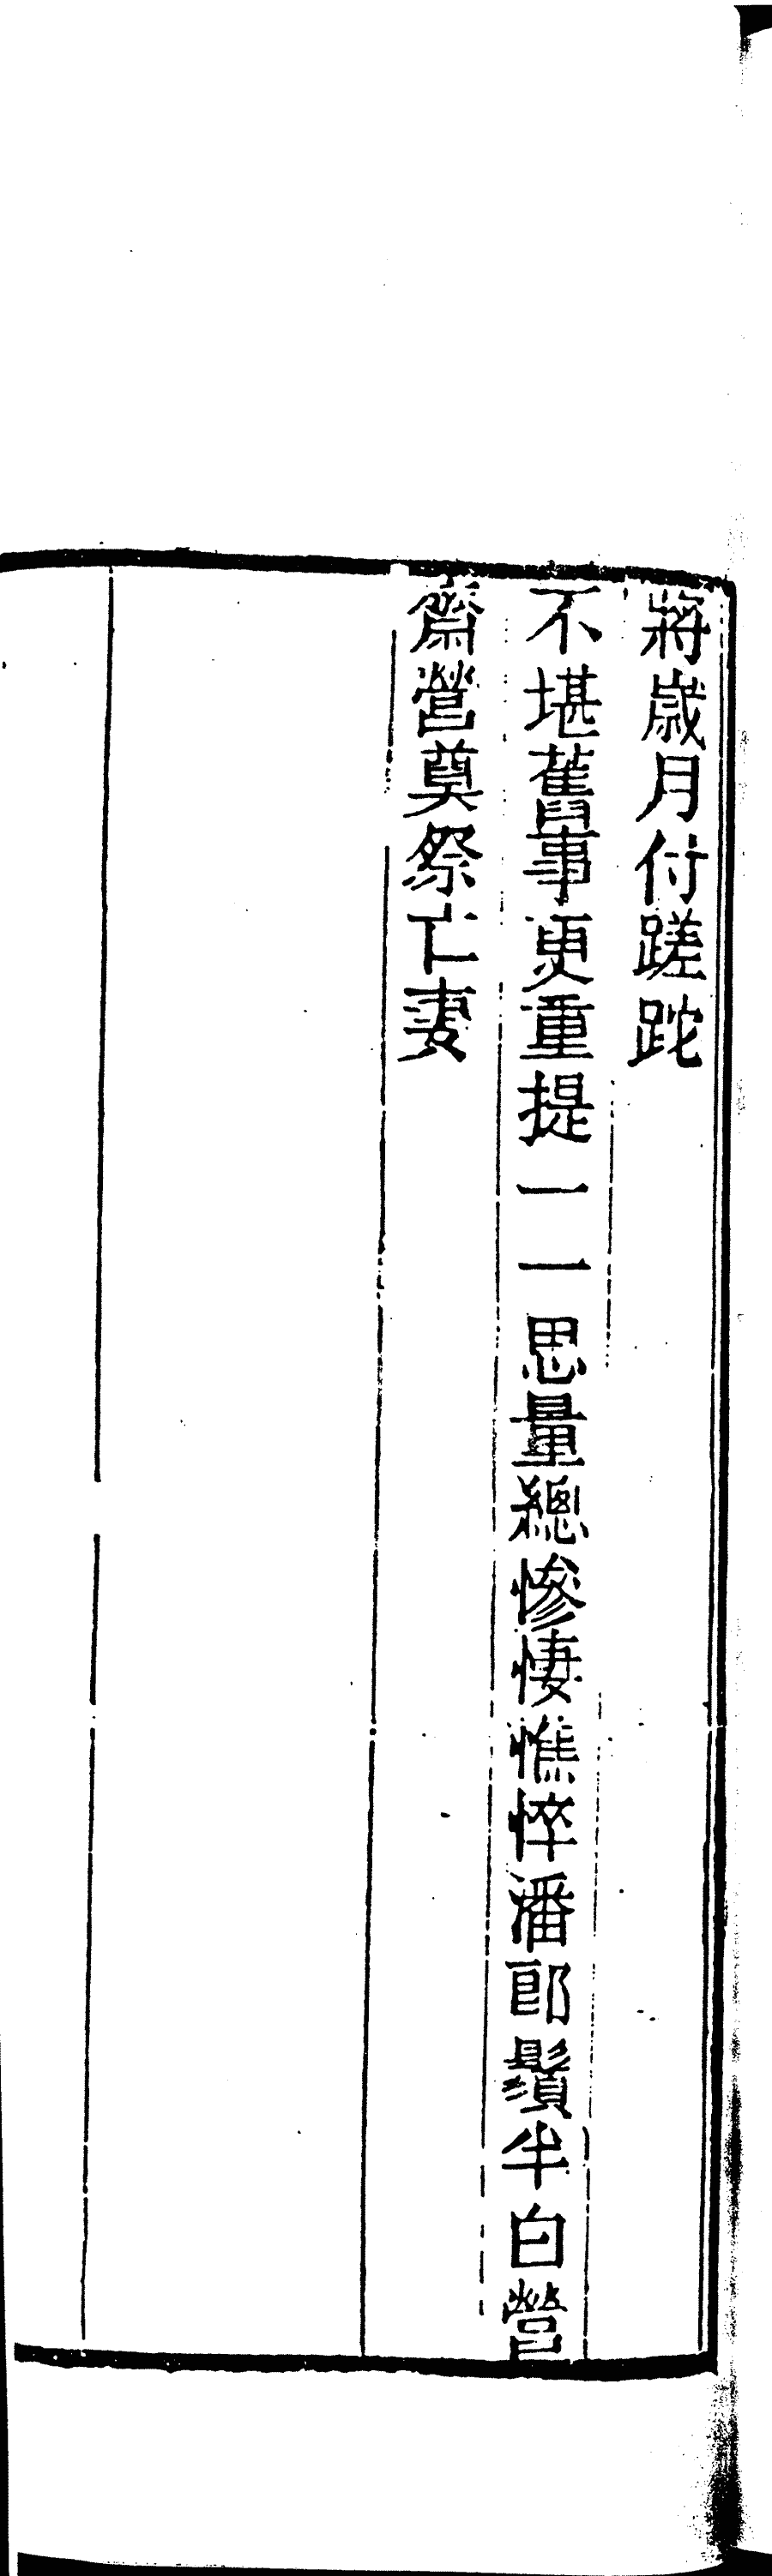 蔣歲月付蹉跎
不堪舊事更重提一一思量總慘悽憔悴潘郎鬚半白營
齋營奠祭亡妻